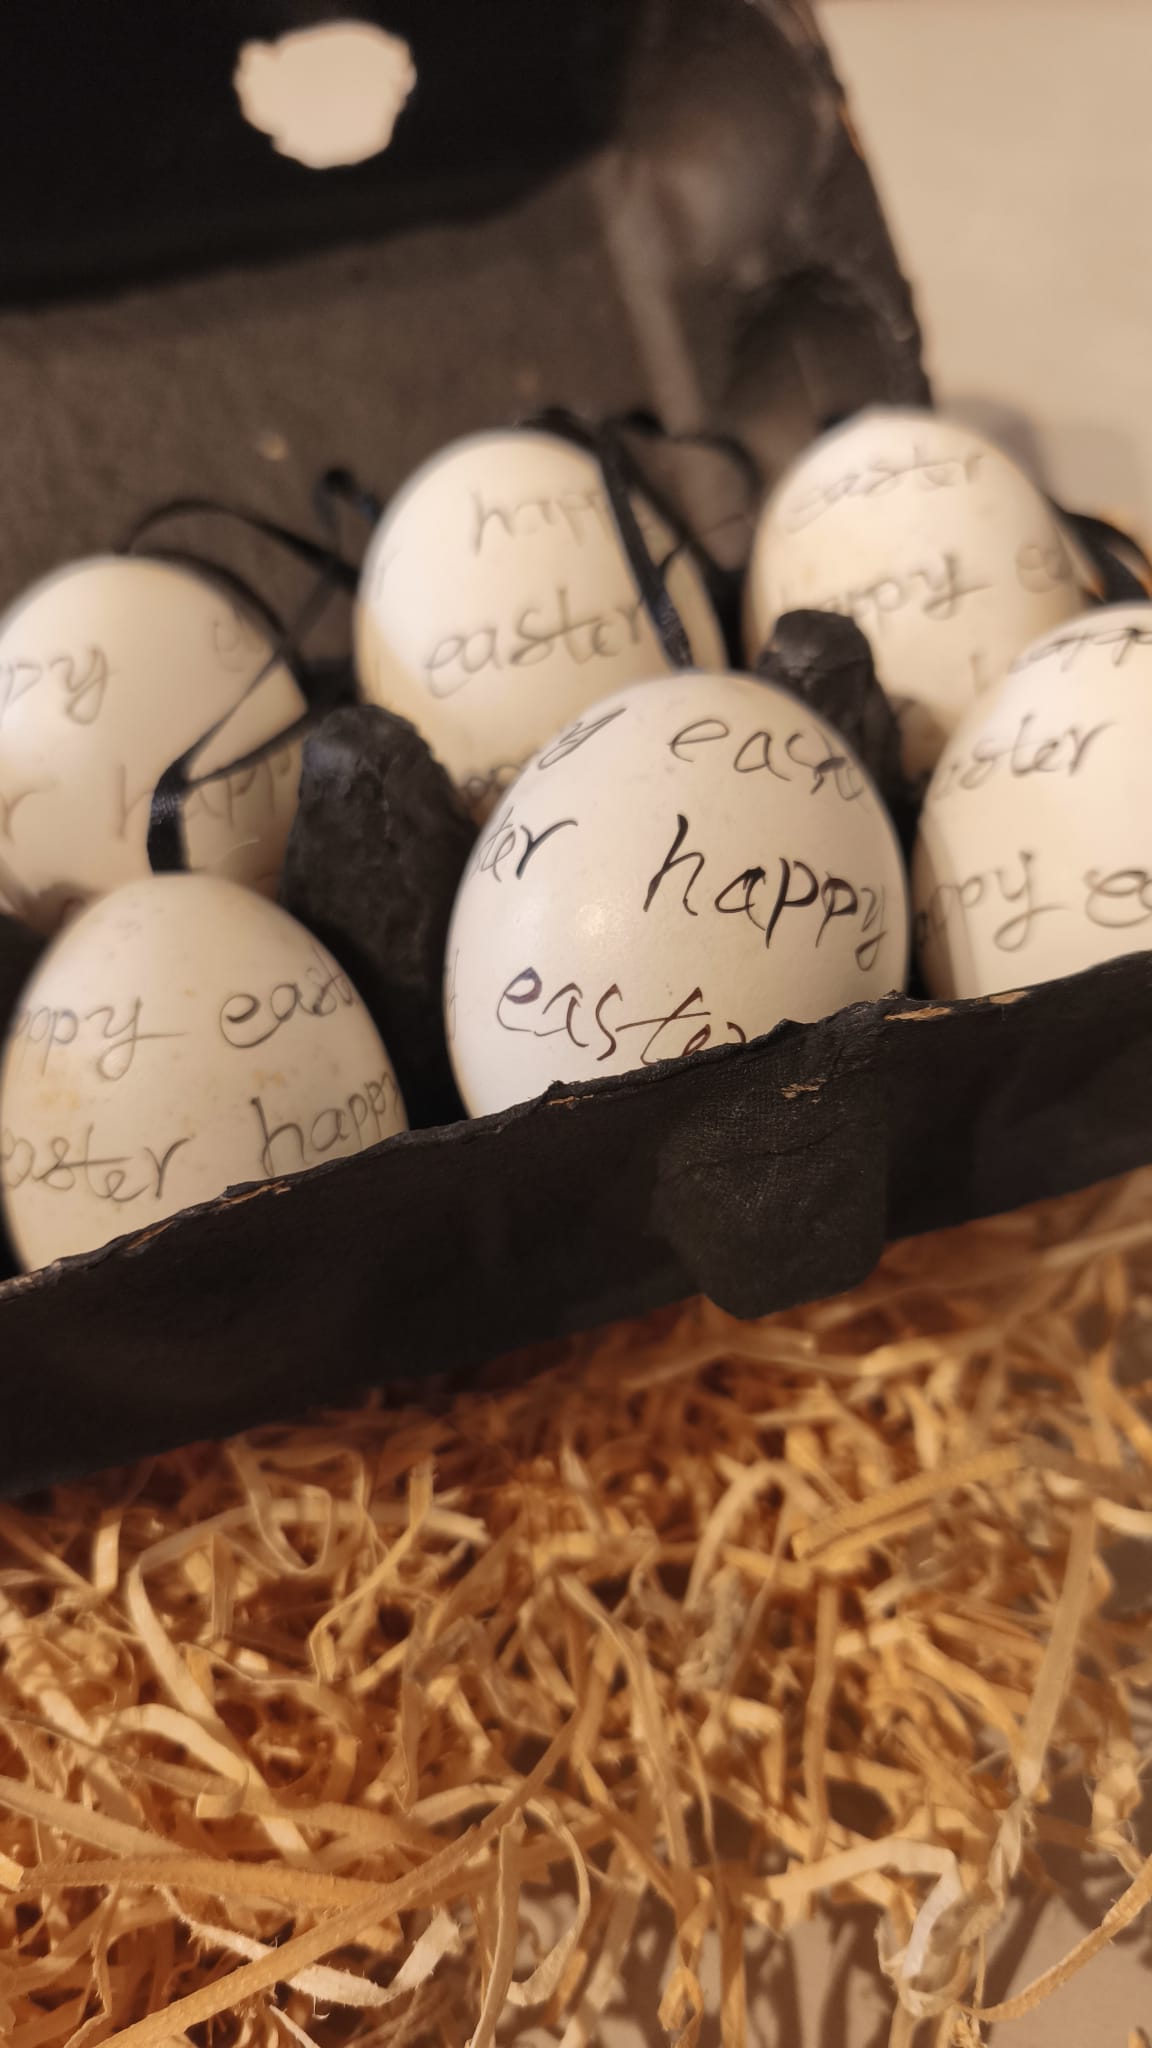 happy
easter
easter
happy
happy
easter
happy
easter
easter happy
easter
happy
happy easter
easter happy